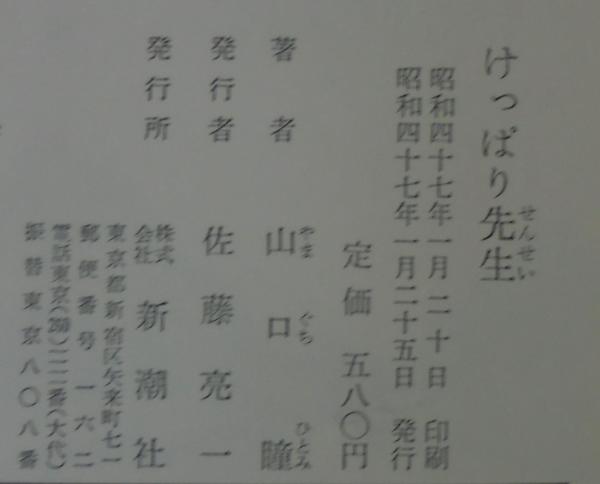 けっぱり先生
昭和四十七年一月二十日 印刷
昭和四十七年一月二十五日 発行
定価 五八〇円
著者 山口瞳
発行者 佐藤亮一
発行所 株式会社 新潮社
東京都新宿区矢来町七一
郵便番号一六二
電話東京(260)一一一番(大代)
振替東京八〇八番